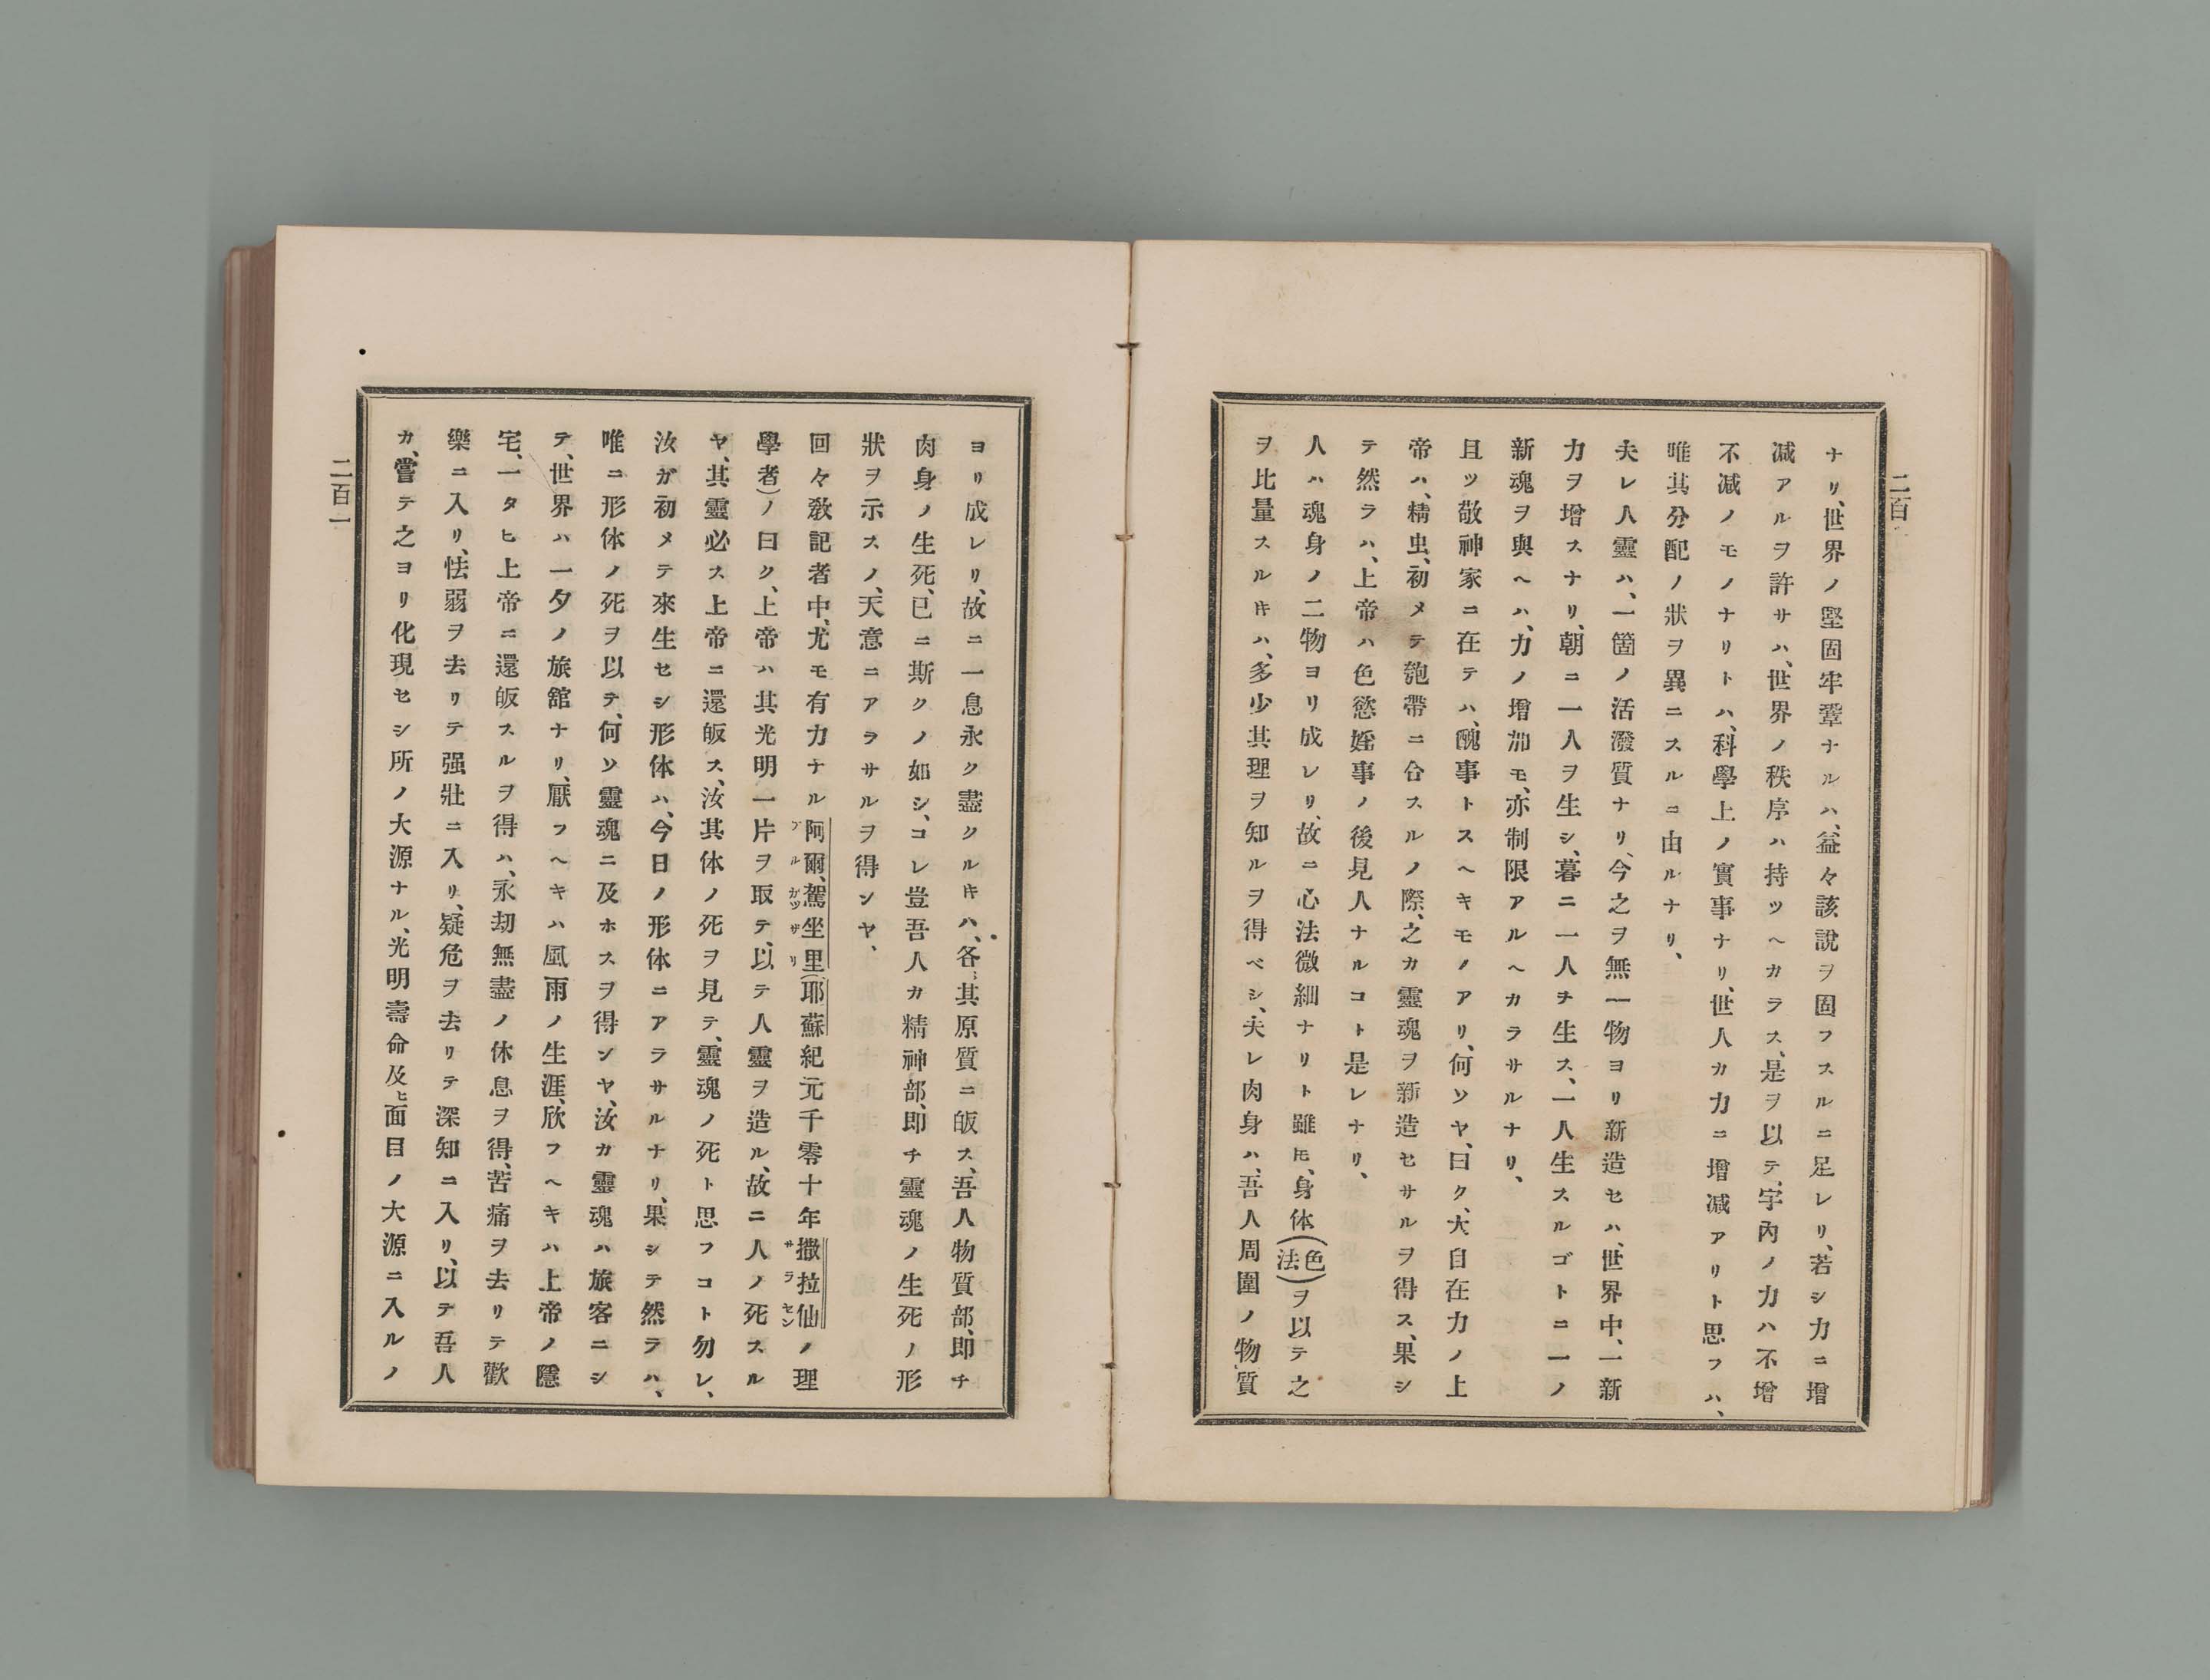 二百
ナリ、世界ノ堅固牢鞏ナルハ、益々該說ヲ固フスルニ足レリ、若シ力ニ增
減アルヲ許サハ、世界ノ秩序ハ持ツヘカラス、是ヲ以テ、宇內ノ力ハ不增
不減ノモノナリトハ、科學上ノ實事ナリ、世人カ力ニ增減アリト思フハ、
唯其分配ノ狀ヲ異ニスルニ由ルナリ、
夫レ人靈ハ、一箇ノ活潑質ナリ、今之ヲ無一物ヨリ新造セハ、世界中、一新
力ヲ增スナリ、朝ニ一人ヲ生シ、暮ニ一人ヲ生ス、一人生スルゴトニ一ノ
新魂ヲ與ヘハ、力ノ增加モ、亦制限アルヘカラサルナリ、
且ツ敬神家ニ在テハ、醜事トスヘキモノアリ、何ソヤ、曰ク、大自在力ノ上
帝ハ、精虫、初メテ匏帶ニ合スルノ際、之カ靈魂ヲ新造セサルヲ得ス、果シ
テ然ラハ、上帝ハ色慾婬事ノ後見人ナルコト是レナリ、
人ハ魂身ノ二物ヨリ成レリ、故ニ心法微細ナリト雖𪜈、身体(色法)ヲ以テ之
ヲ比量スルキハ、多少其理ヲ知ルヲ得ベシ、夫レ肉身ハ、吾人周圍ノ物質
ヨリ成レリ、故ニ一息永ク盡クルキハ、各〻其原質ニ皈ス、吾人物質部、即チ
肉身ノ生死、已ニ斯クノ如シ、コレ豈吾人カ精神部、即チ靈魂ノ生死ノ形
狀ヲ示スノ、天意ニアラサルヲ得ンヤ、
回々敎記者中、尤モ有力ナル阿爾、駕坐里(耶蘇紀元千零十年撒拉仙ノ理
學者)ノ曰ク、上帝ハ其光明一片ヲ取テ、以テ人靈ヲ造ル、故ニ人ノ死スル
ヤ、其靈必ス上帝ニ還皈ス、汝其体ノ死ヲ見テ、靈魂ノ死ト思フコト勿レ、
汝ガ初メテ來生セシ形体ハ、今日ノ形体ニアラサルナリ、果シテ然ラハ、
唯ニ形体ノ死ヲ以テ、何ソ靈魂ニ及ホスヲ得ンヤ、汝カ靈魂ハ旅客ニシ
テ、世界ハ一夕ノ旅舘ナリ、厭フヘキハ風雨ノ生涯、欣フヘキハ上帝ノ隱
宅、一タヒ上帝ニ還皈スルヲ得ハ、永劫無盡ノ休息ヲ得、苦痛ヲ去リテ歡
樂ニ入リ、怯弱ヲ去リテ强壯ニ入リ、疑危ヲ去リテ深知ニ入リ、以テ吾人
カ、嘗テ之ヨリ化現セシ所ノ大源ナル、光明壽命及ヒ面目ノ大源ニ入ルノ
二百一